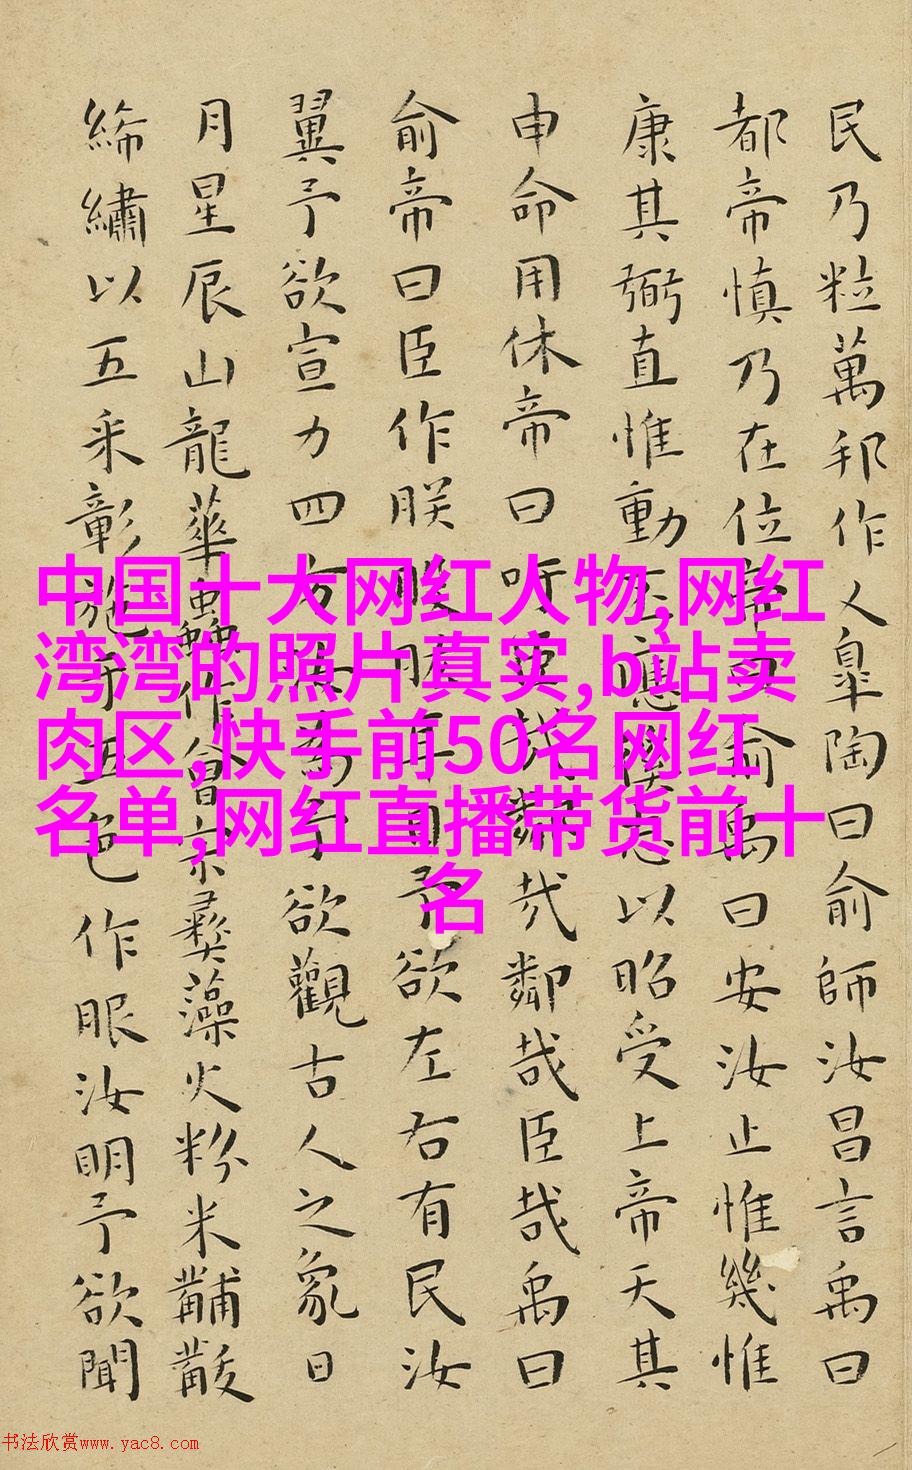 民乃粒萬邦作乂皐陶曰俞師汝昌言禹曰
都帝慎乃在位帝曰俞禹曰安汝止惟幾惟
康其弼直惟動丕應徯志以昭受上帝天其
申命用休帝曰吁臣哉鄰哉鄰哉臣哉禹曰
俞帝曰臣作朕股肱耳目予欲左右有民汝
翼予欲宣力四方汝為予欲觀古人之象日
月星辰山龍華蟲作會宗彝藻火粉米黼黻
絺繡以五采彰施于五色作服汝明予欲聞
中国十大网红人物,网红
湾湾的照片真实,b站卖
肉区,快手前50名网红
名单,网红直播带货前十
名
书法欣赏www.yac8.com